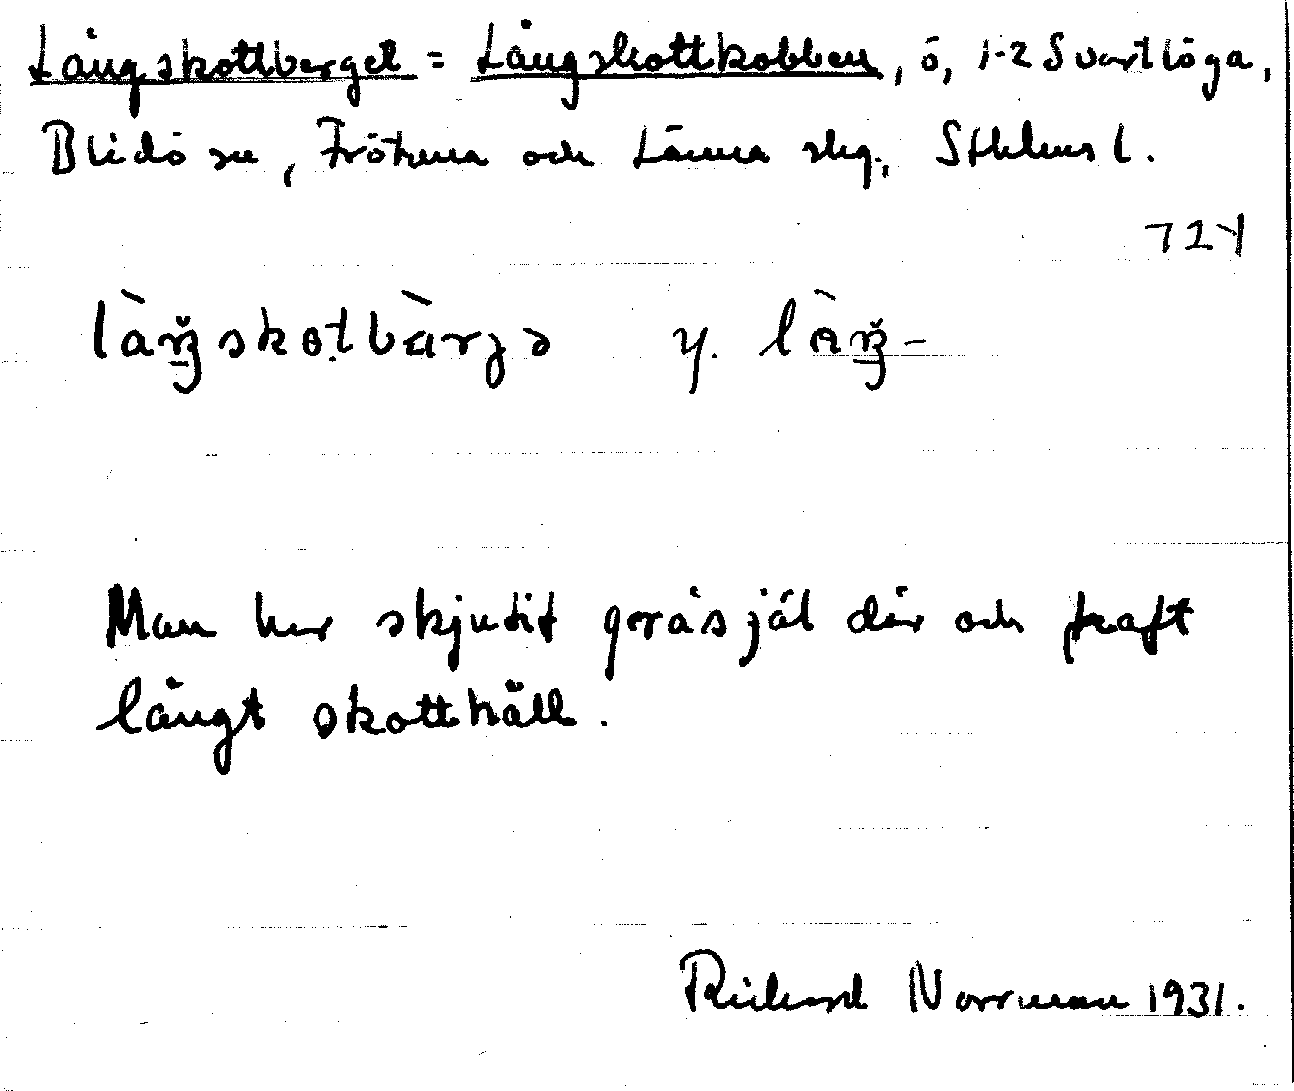 Långskottberget = Långskottkobben, ö, 1-2 Svartlöga,
Blidö sn, Frötuna och Länna skg., Sthlms l.
724
Man har skjutit gråsjäl där och haft
långt skotthåll.
Rickard Norrman 1931.